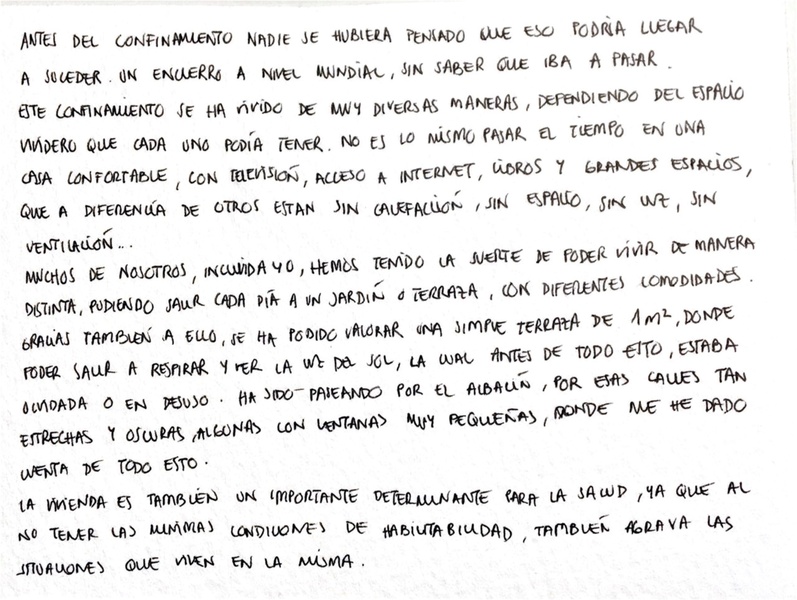 ANTES DEL CONFINAMIENTO NADIE SE HUBIERA PENSADO QUE ESO PODRÍA LLEGAR
A SUCEDER. UN ENCIERRO A NIVEL MUNDIAL, SIN SABER QUE IBA A PASAR.
ESTE CONFINAMIENTO SE HA VIVIDO DE MUY DIVERSAS MANERAS, DEPENDIENDO DEL ESPACIO
VIVIDERO QUE CADA UNO PODÍA TENER. NO ES LO MISMO PASAR EL TIEMPO EN UNA
CASA CONFORTABLE, CON TELEVISIÓN, ACCESO A INTERNET, LIBROS Y GRANDES ESPACIOS,
QUE A DIFERENCIA DE OTROS ESTAN SIN CALEFACCIÓN, SIN ESPACIO, SIN LUZ, SIN
VENTILACIÓN...
MUCHOS DE NOSOTROS, INCLUIDA YO, HEMOS TENIDO LA SUERTE DE PODER VIVIR DE MANERA
DISTINTA, PUDIENDO SALIR CADA DÍA A UN JARDÍN O TERRAZA, CON DIFERENTES COMODIDADES.
GRACIAS TAMBIÉN A ELLO, SE HA PODIDO VALORAR UNA SIMPLE TERRAZA DE 1M², DONDE
PODER SALIR A RESPIRAR Y VER LA LUZ DEL SOL, LA CUAL ANTES DE TODO ESTO, ESTABA
OLVIDADA O EN DESUSO. HA SIDO PASEANDO POR EL ALBAICÍN, POR ESAS CALLES TAN
ESTRECHAS Y OSCURAS, ALGUNAS CON VENTANAS MUY PEQUEÑAS, DONDE ME HE DADO
CUENTA DE TODO ESTO.
LA VIVIENDA ES TAMBIÉN UN IMPORTANTE DETERMINANTE PARA LA SALUD, YA QUE AL
NO TENER LAS MINIMAS CONDICIONES DE HABILITABILIDAD, TAMBIÉN AGRAVA LAS
SITUACIONES QUE VIVEN EN LA MISMA.